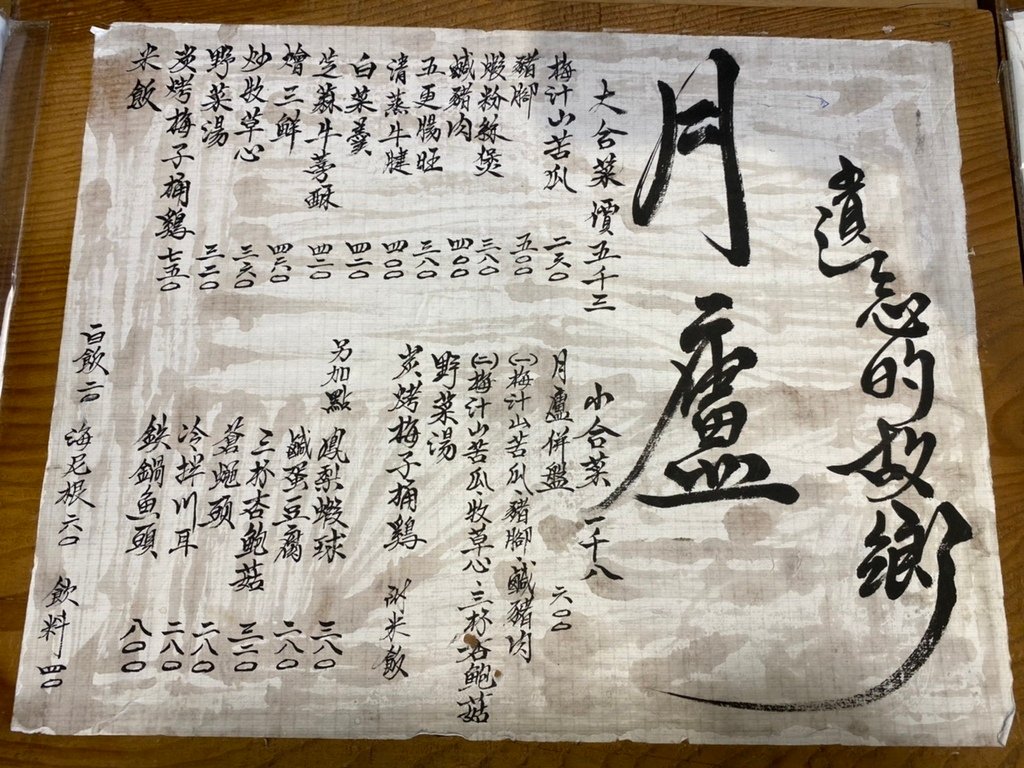 遺忘的故鄉
月廬
大合菜 價五千三
梅汁山苦瓜 二六〇
豬腳 五〇〇
蝦粉絲煲 三八〇
鹹豬肉 四〇〇
五更腸旺 三八〇
清蒸牛腱 四〇〇
白菜羹 四二〇
芝蔴牛蒡酥 四二〇
燴三鮮 四六〇
炒牧草心 三六〇
野菜湯 三二〇
炭烤梅子桶鷄 七五〇
米飯
小合菜 一千八
月廬併盤 六〇〇
(一)梅汁山苦瓜、豬腳、鹹豬肉
(二)梅汁山苦瓜、牧草心、三杯杏鮑菇
野菜湯
炭烤梅子桶鷄 附米飯
另加點
鳳梨蝦球 三八〇
鹹蛋豆腐 二八〇
三杯杏鮑菇 三二〇
蒼蠅頭 二八〇
冷拌川耳 二八〇
鉄鍋魚頭 八〇〇
白飯二〇 海尼根六〇 飲料四〇